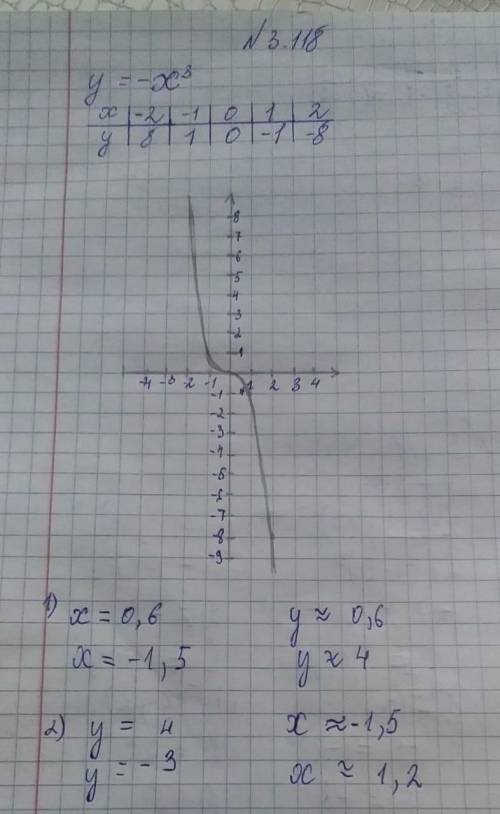 №3.118
y = -x³
x -2 -1 0 1 2
y 8 1 0 -1 -8
8
7
6
5
4
3
2
1
-4 -3 -2 -1 1 2 3 4
-1
-2
-3
-4
-5
-6
-7
-8
-9
1) x = 0,6 y ≈ 0,6
x = -1,5 y ≈ 4
2) y = 4 x ≈ -1,5
y = -3 x ≈ 1,2